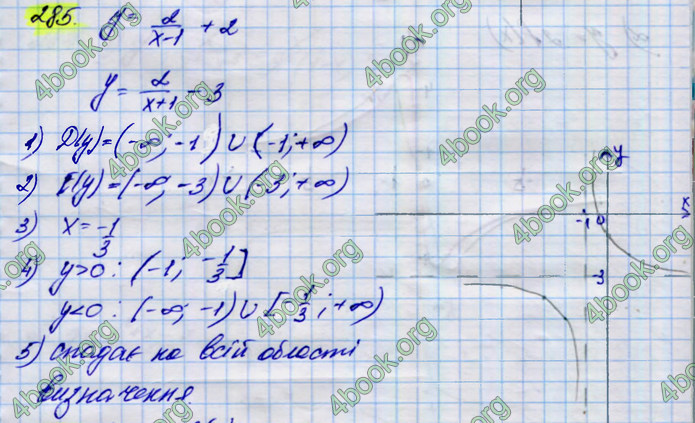 285. y = 2/(x-1) + 2
y = 2/(x+1) - 3
1) D(y) = (-∞; -1) ∪ (-1; +∞)
2) E(y) = (-∞; -3) ∪ (-3; +∞)
3) x = -1/3
4) y>0 : (-1; -1/3]
y<0 : (-∞; -1) ∪ [-1/3; +∞)
5) спадає на всій області
визначення.
y
x
-1 0
-3
4book.org